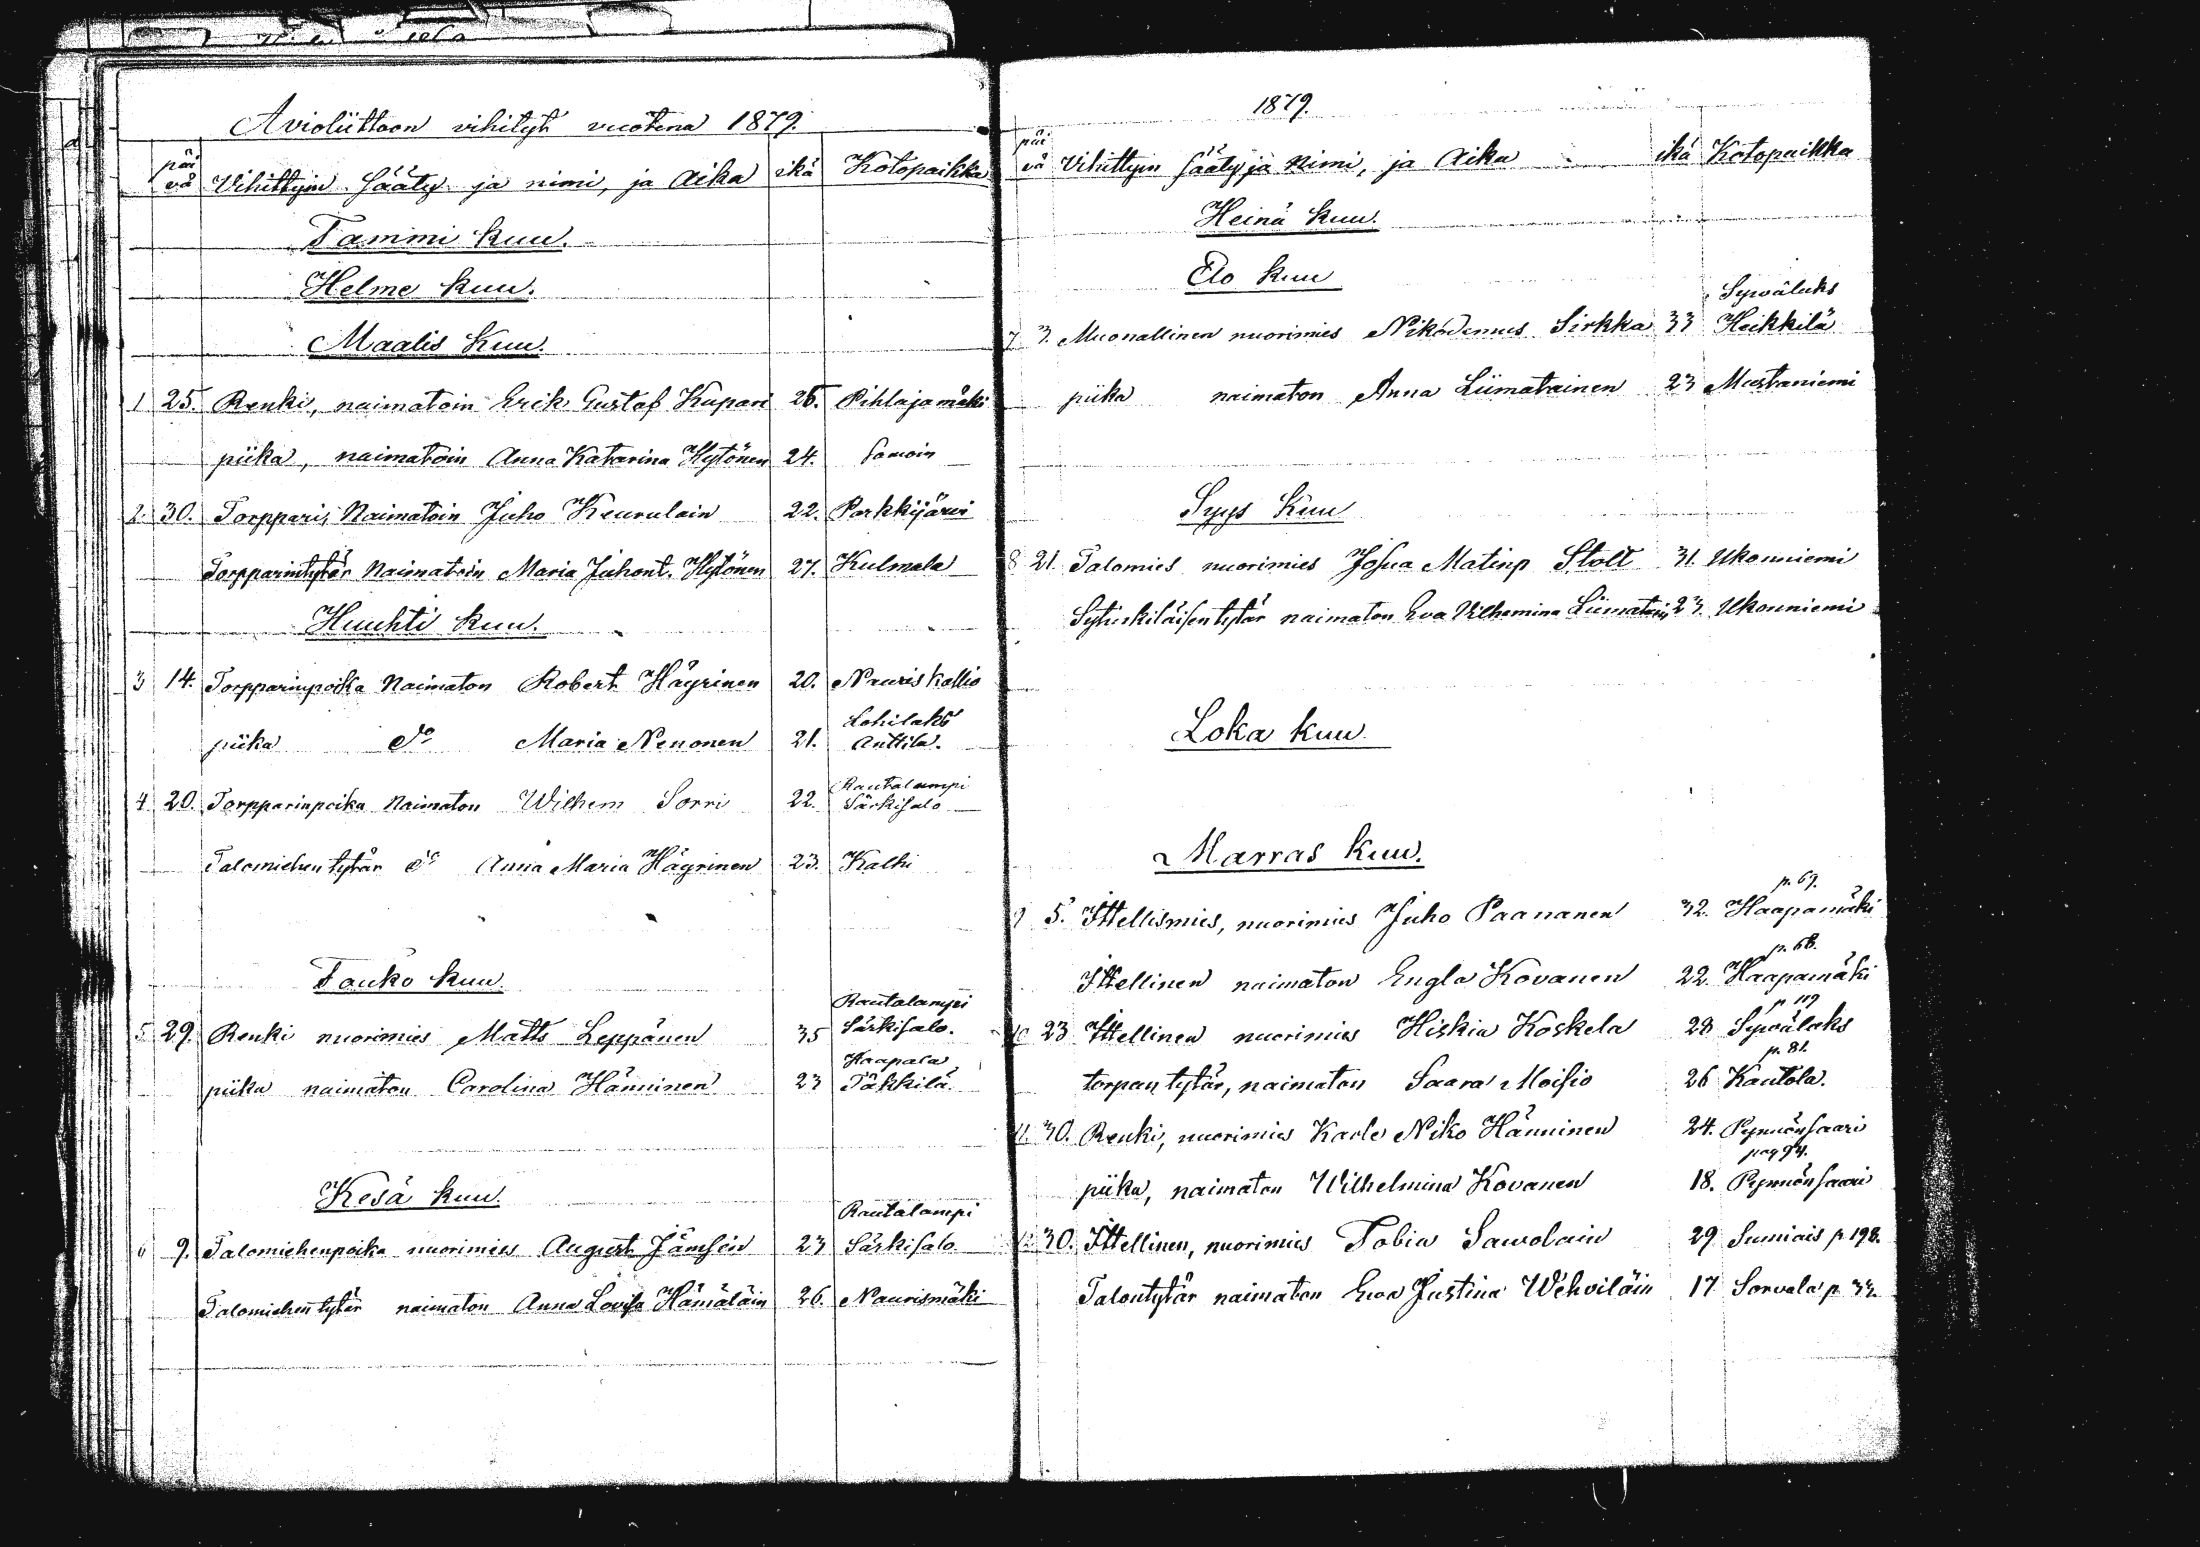 Avioliittoon vihityt vuotena 1879.
päi vä Vihittyin sääty ja nimi, ja aika ikä Kotopaikka
Tammi kuu.
Helme kuu.
Maalis kuu.
1 25. Renki, naimatoin Erik Gustaf Kupari 26. Pihlajamäki
piika, naimatoin Anna Katarina Hytönen 24. samoin
2. 30. Torppari, Naimatoin Juho Keurulain 22. Parkkijärvi
Torpparintytär Naimatoin Maria Juhont. Hytönen 27. Kulmala
Huuhti kuu.
3 14. Torpparinpoika Naimaton Robert Häyrinen 20. Nauriskallio
Lohilaks
piika do Maria Nenonen 21. Anttila.
Rautalampi
4 20. Torpparinpoika Naimaton Wilhem Sorri 22. Särkisalo
Talomiehentytär do Anna Maria Häyrinen 23. Kalki
Touko kuu
Rautalampi
5 29. Renki nuorimies Matts Leppänen 35 Särkisalo.
Haapala
piika naimaton Carolina Hänninen 23 Täkkilä.
Kesä kuu.
Rautalampi
6 9. Talomiehenpoika nuorimies August Jämsén 23 Särkisalo
Talomiehentytär naimaton Anna Lovisa Hämäläin 26. Naurismäki
1879.
päi vä Vihittyin sääty ja nimi, ja aika ikä Kotopaikka
Heinä kuu.
Elo kuu
Sywälaks
7 3. Muonallinen nuorimies Nikodemus Sirkka 33 Heikkilä
piika naimaton Anna Liimatainen 23 Mustaniemi
Syys kuu
8 21. Talomies nuorimies Josua Matinp Stolt 31. Ukonniemi
naimaton Eva Vilhemina Liimatain 23. Ukonniemi
Loka kuu
Marras kuu.
p. 69.
9 5. Ittellismies, nuorimies Juho Paananen 32. Haapamäki
p. 68.
Ittellinen naimaton Engla Kovanen 22. Haapamäki
p 119
10 23 Ittellinen nuorimies Hiskia Koskela 28 Sywälaks
p. 81.
torpantytär, naimaton Saara Moisio 26 Kautola.
11. 30. Renki, nuorimies Karle Niko Hänninen 24. Pynnönsaari
pag 94.
piika, naimaton Wilhelmina Kovanen 18. Pynnönsaari
12. 30. Ittellinen, nuorimies Tobia Sawolain 29 Sumiais p 198.
Talontytär naimaton Eva Justina Wehviläin 17 Sorvala p 33.